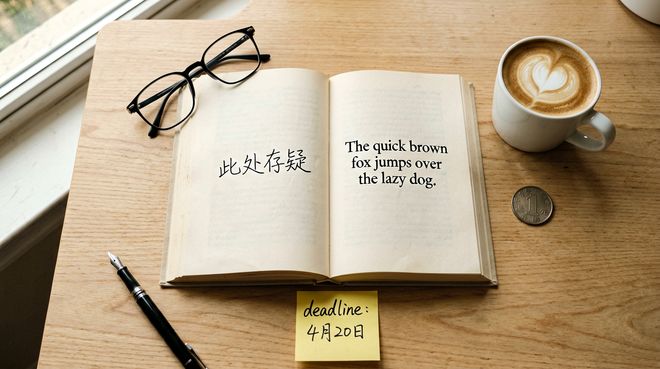 此处存疑
The quick brown
fox jumps over
the lazy dog.
deadline:
4月20日
1